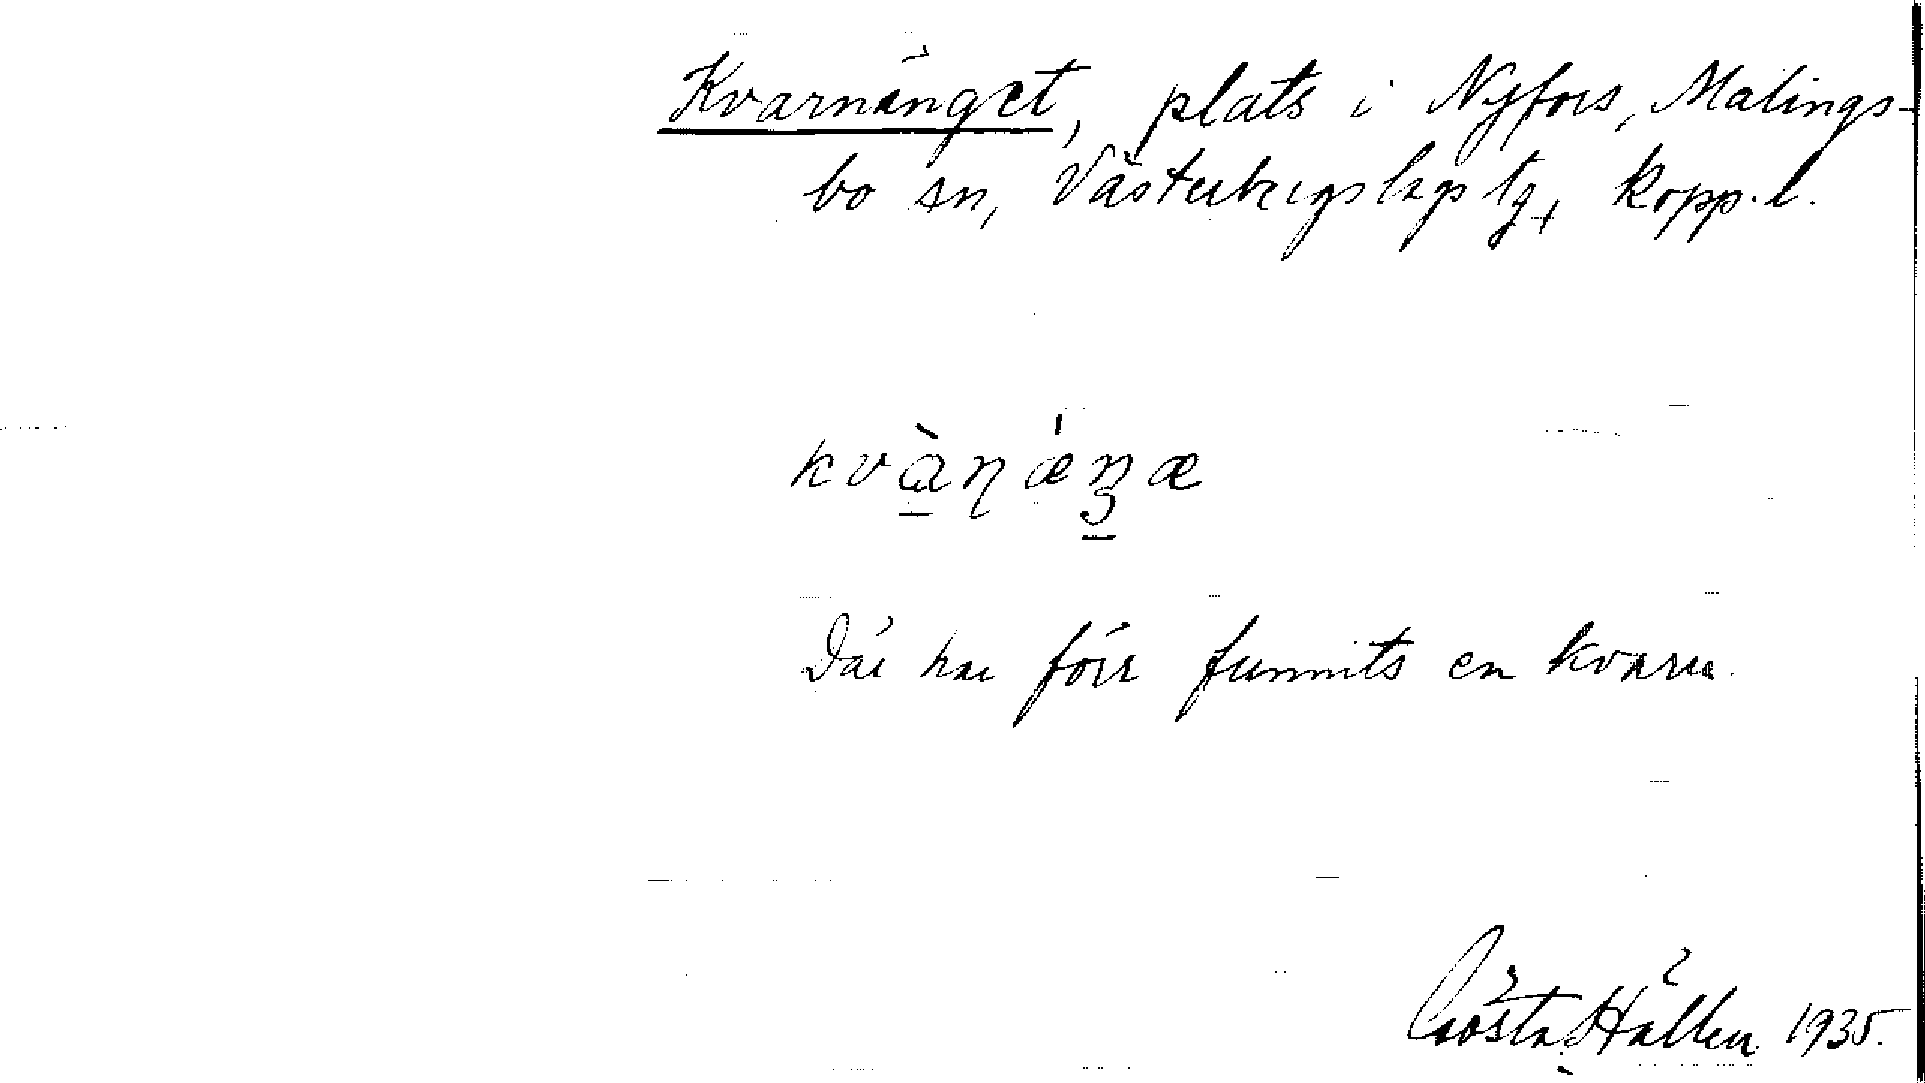 Kvarnänget, plats i Nyfors, Malings-
bo sn, Västerbergslags tg, Kopp. l.
kvàṇǽŋæ
Där har förr funnits en kvarn.
Gösta Hallen 1935.